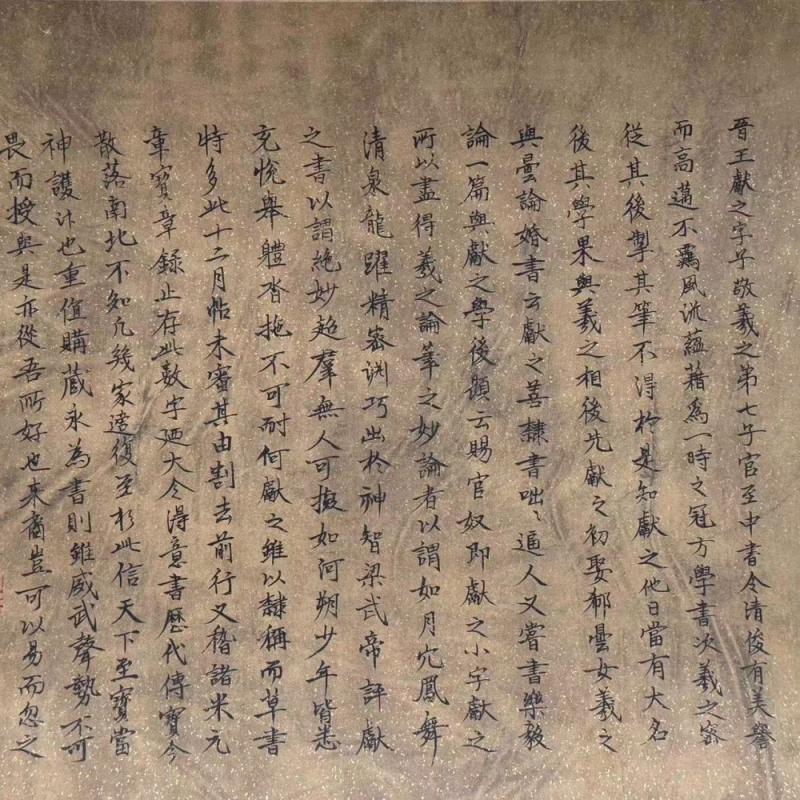 晉王獻之字子敬羲之第七子官至中書令清俊有美譽
而高邁不羈風流蘊藉為一時之冠方學書次羲之密
從其後掣其筆不得於是知獻之他日當有大名
後其學果與羲之相後先獻之初娶郗曇女羲之
與曇論婚書云獻之善隸書咄咄逼人又嘗書樂毅
論一篇與獻之學後題云賜官奴即獻之小字獻之
所以盡得羲之論筆之妙論者以謂如月穴鳳舞
清泉龍躍精密淵巧出於神智梁武帝評獻
之書以謂絕妙超群無人可擬如河朔少年皆悉
充悅舉體沓拖不可耐何獻之雖以隸稱而草書
特多此十二月帖未審其由割去前行又稽諸米元
章寶章錄止存此數字廼大令得意書歷代傳寶今
散落南北不知凡幾家遠復至於此信天下至寶當
神護汴也重值購藏永為書則雖威武聲勢不可
畏而授與是亦從吾所好也來裔豈可以易而忽之